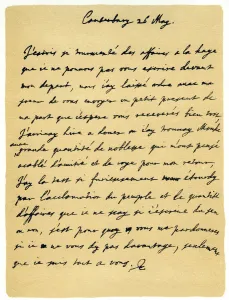 Canterbury 26 May.
J'estois si des affaires a la haye
que je ne pouvois pas vous escrire devant
mon depart, vous j'ay laissé ordre avec ma
sœur de vous envoyer un petit present de
ma part que j'espere vous recevrez bien
J'arrivay hier a douvre ou j'ay trouvay Monk
avec grande quantité de noblesse qui m'ont pensé
d'amitié et de joye pour mon retour,
J'ay le test si furieusement estourdy
par l'acclamation du peuple et le quantité
d'affaires que je ne scay si j'escrive du sen
ou non, c'est pour vous me pardonnerez
si je ne vous dy pas davantage, seulement
que je suis tout a vous. C